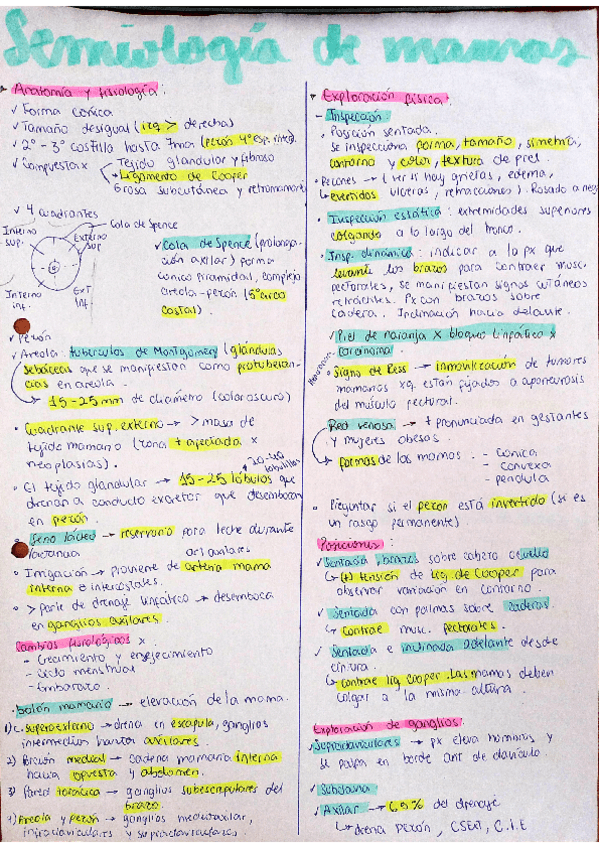 Semiología de mamas
Anatomía y fisiología:
✓ Forma cónica
✓ Tamaño desigual (izq > derecha)
✓ 2° - 3° costilla hasta 7ma (pezón 4° esp. inter.)
✓ Compuesta x Tejido glandular y fibroso
Ligamento de Cooper
Grasa subcutánea y retromamaria
✓ 4 cuadrantes
Cola de Spence
Interno sup.
Externo sup
Interno inf.
Ext inf.
✓ Cola de Spence (prolonga-
ción axilar) forma
cónico piramidal, complejo
areola-pezón (5° arco
costal).
✓ Pezón
✓ Areola: tubérculos de Montgomery (glándulas
sebáceas que se manifiestan como protuberan-
cias en areola.
→ 15-25 mm de diámetro (color oscuro)
• Cuadrante sup. externo → > masa de
tejido mamario (zona + afectada x
neoplasias).
20-40 lobulillos
• El tejido glandular → 15-25 lóbulos que
drenan a conducto excretor que desembocan
en pezón.
• Seno lácteo → reservorio para leche durante
lactancia
• Irrigación → proviene de arteria mama
interna e intercostales.
• > parte de drenaje linfático → desemboca
en ganglios axilares.
Cambios fisiológicos x
- Crecimiento y envejecimiento
- Ciclo menstrual
- Embarazo.
Botón mamario → elevación de la mama.
1) C. superoexterno → drena en escápula, ganglios
intermedios hasta axilares.
2) Porción medial → cadena mamaria interna
hacia opuesta y abdomen.
3) Pared torácica → ganglios subescapulares del
brazo.
4) Areola y pezón → ganglios medioaxilar,
infraclaviculares y supraclaviculares.
Exploración física:
- Inspección:
• Posición sentada.
Se inspecciona forma, tamaño, simetría,
contorno y color, textura de piel.
• Pezones → (ver si hay grietas, edema,
evertidos úlceras, retracciones). Rosado a neg
• Inspección estática: extremidades superiores
colgando a lo largo del tronco.
• Insp. dinámica: indicar a la px que
levante los brazos para contraer musc.
pectorales, se manifiestan signos cutáneos
retráctiles. Px con brazos sobre
cadera. Inclinación hacia delante.
✓ Piel de naranja x bloqueo linfático x
carcinoma.
• Signo de → inmovilización de tumores
mamarios xq. están fijados a aponeurosis
del músculo pectoral.
Red venosa → + pronunciada en gestantes
y mujeres obesas.
→ formas de las mamas. - Cónica
- Convexa
- péndula
• Preguntar si el pezón está invertido (si es
un rasgo permanente)
Posiciones:
✓ Sentada brazos sobre cabeza o cuello
↳ (+) tensión de lig. de Cooper para
observar variación en contorno.
✓ Sentada con palmas sobre caderas
↳ contrae musc. pectorales.
✓ Sentada e inclinada adelante desde
cintura.
↳ contrae lig. cooper. Las mamas deben
colgar a la misma altura.
Exploración de ganglios:
✓ Supraclaviculares → px eleva hombros y
se palpa en borde ant de clavícula.
✓ Subclavia
✓ Axilar → 65% del drenaje
↳ drena pezón, CSExt, C.I.E